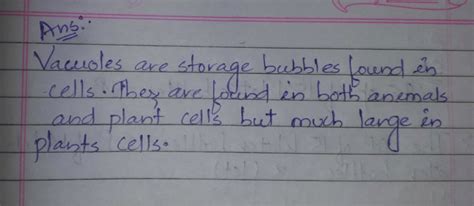 Ans:-
Vacuoles are storage bubbles found in
cells. They are found in both animals
and plant cells but much large in
plants cells.